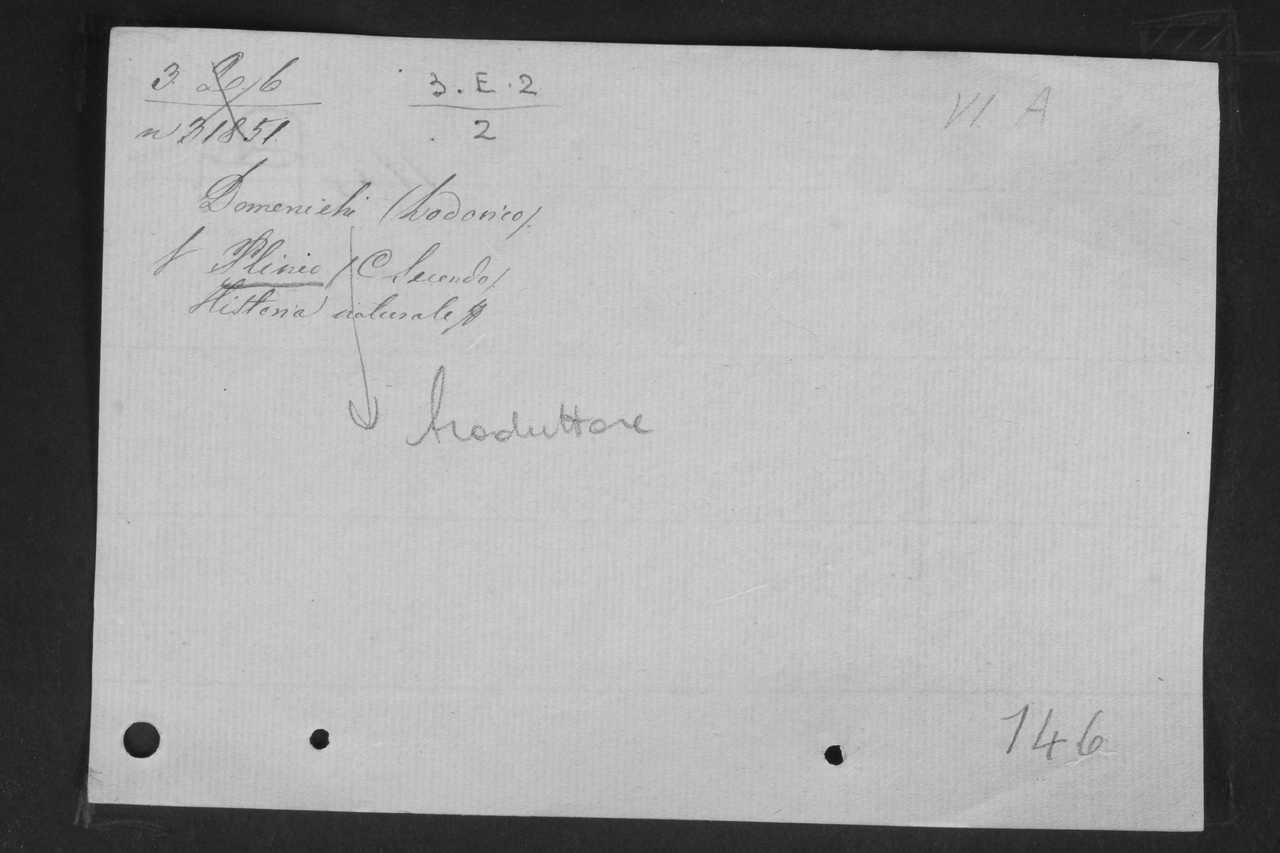 3. D/6
n 31851.
3. E. 2
2
VI A
Domenichi (Lodovico).
Plinio (C Secondo)
Historia naturale
traduttore
146